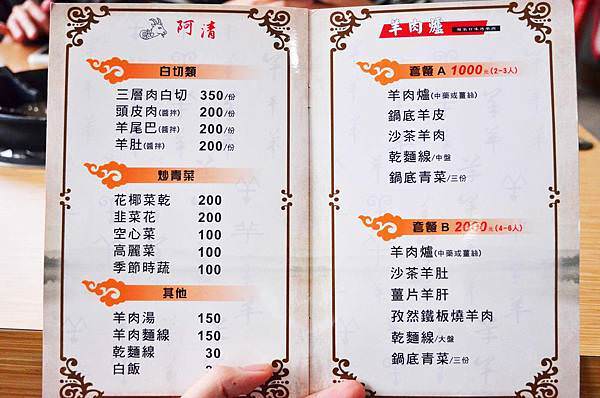 阿清
白切類
三層肉白切 350/份
頭皮肉(醬拌) 200/份
羊尾巴(醬拌) 200/份
羊肚(醬拌) 200/份
炒青菜
花椰菜乾 200
韭菜花 200
空心菜 100
高麗菜 100
季節時蔬 100
其他
羊肉湯 150
羊肉麵線 150
乾麵線 30
白飯
羊肉爐
套餐 A 1000元(2-3人)
羊肉爐(中藥或薑絲)
鍋底羊皮
沙茶羊肉
乾麵線/中盤
鍋底青菜/三份
套餐 B 2000元(4-6人)
羊肉爐(中藥或薑絲)
沙茶羊肚
薑片羊肝
孜然鐵板燒羊肉
乾麵線/大盤
鍋底青菜/三份